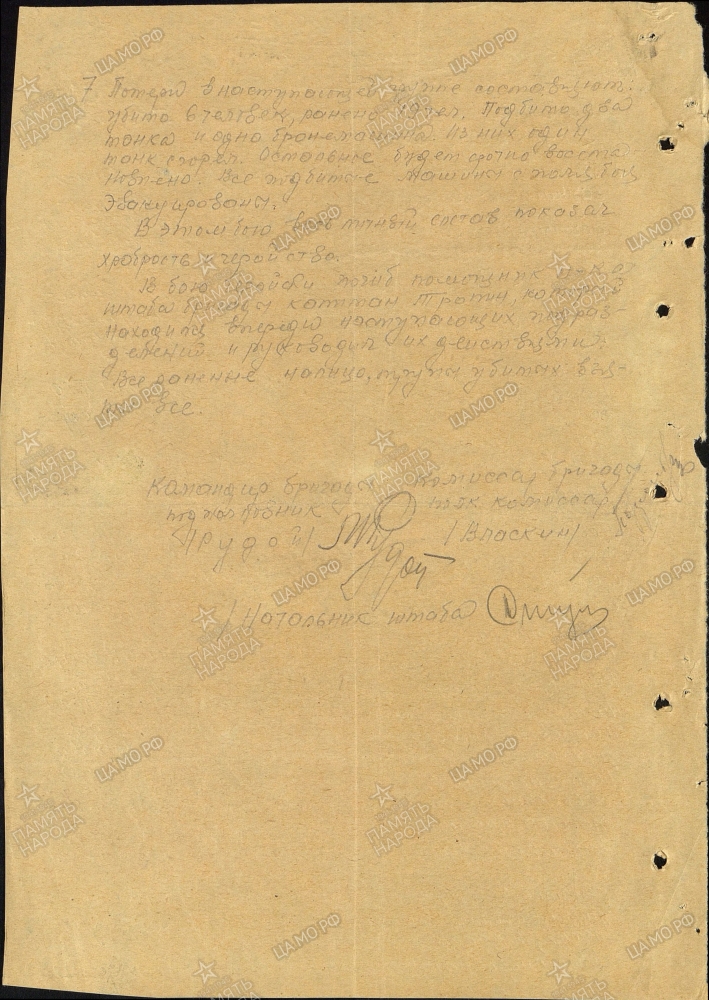 7. Потери в наступающей группе составляют:
убито 6 человек, ранено чел. Подбито два
танка и одна бронемашина. Из них один
танк сгорел. Остальные будет срочно восста
новлено. Все подбитые машины с поля боя
Эвакуированы.
В этом бою весь личный состав показал
храбрость и геройство.
В бою погиб помощник
штаба бригады капитан который
находился впереди наступающих подраз-
делений и руководил их действиями.
Все раненые налицо, трупы убитых
все.
Командир бригады Комиссар бригады
подполковник комиссар
/Рудой/ Рудой /Власкин/
/Начальник штаба
ПАМЯТЬ
НАРОДА
ЦАМО.РФ